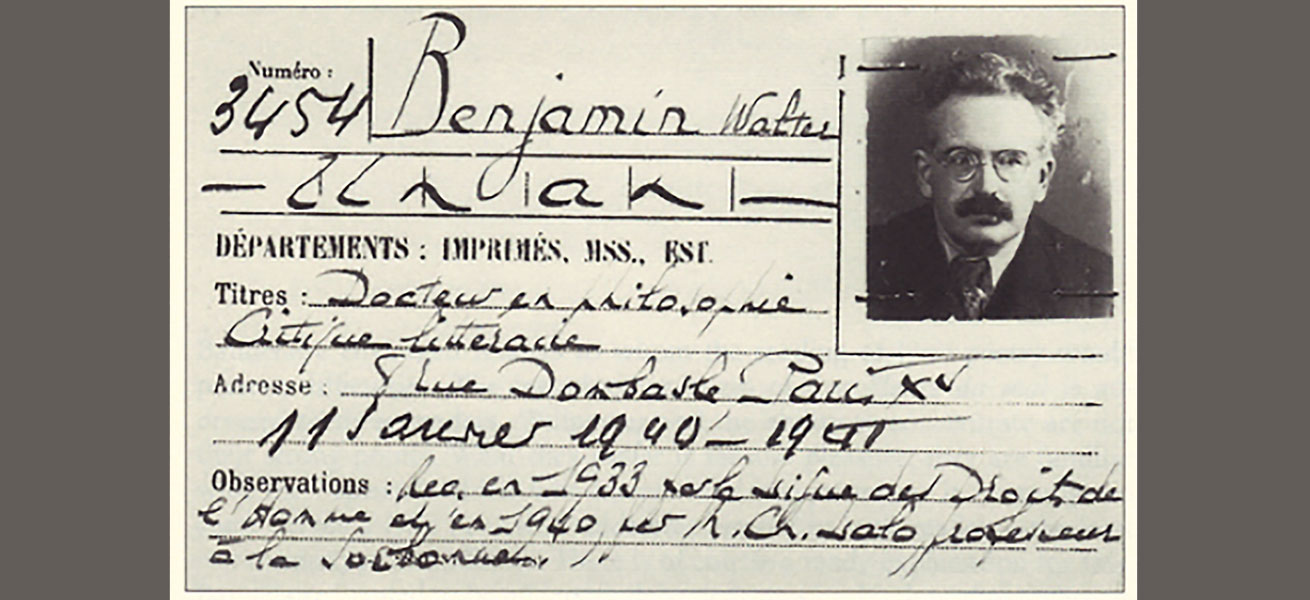 Numéro :
3454 Benjamin Walter
an
DÉPARTEMENTS : IMPRIMÉS, MSS., EST.
Titres : Docteur en philosophie
Critique littéraire
Adresse : rue Dombasle Paris XV
11 Janvier 1940 – 1941
Observations : Rec. en 1933 par la Ligue des Droits de
l'Homme et en 1940 par M. Ch. Lalo professeur
à la Sorbonne.